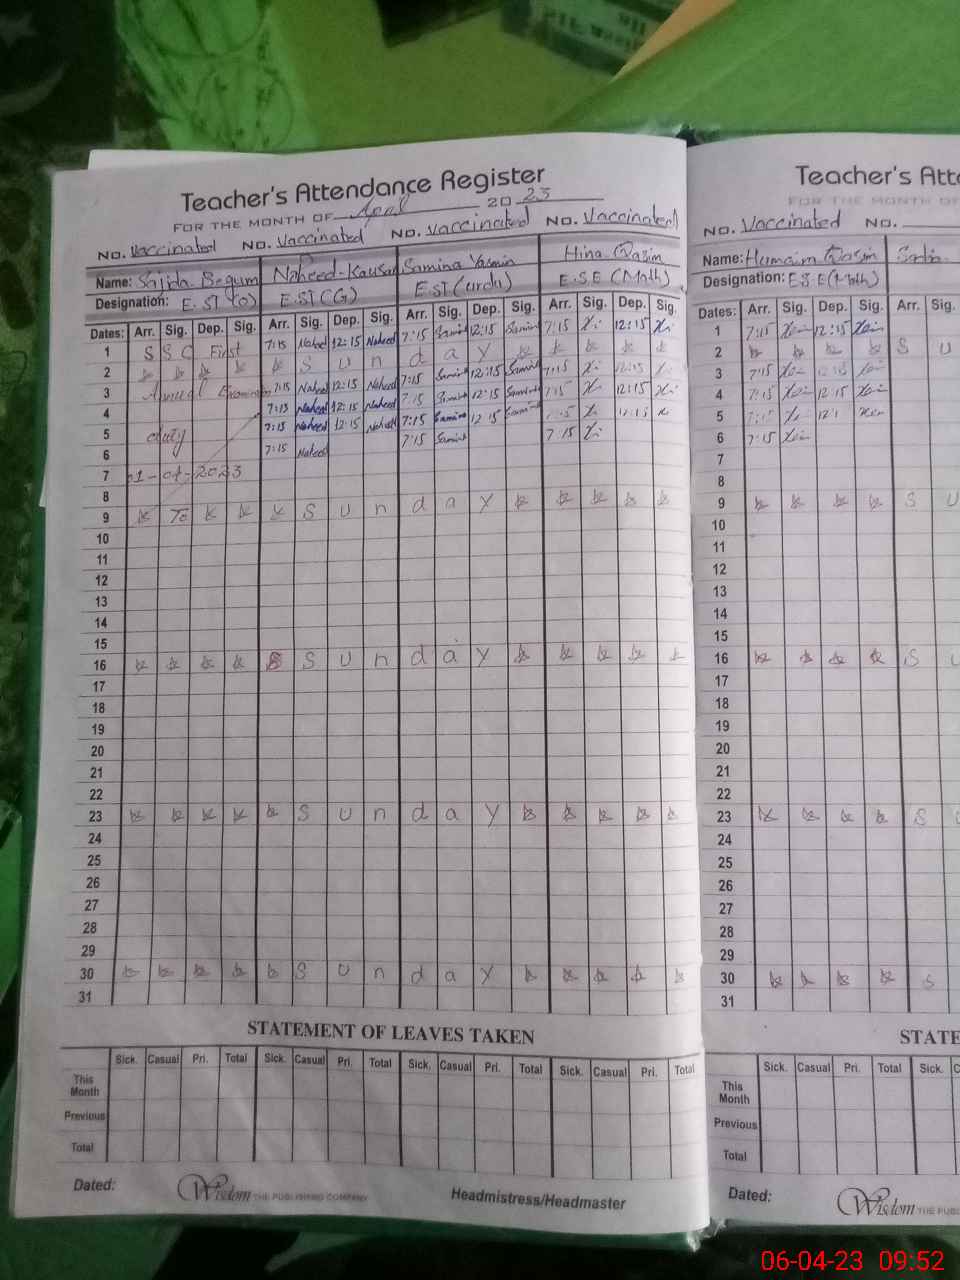 Teacher's Attendance Register
FOR THE MONTH OF April 2023
NO. Vaccinated NO. Vaccinated NO. Vaccinated NO. Vaccinated
Name: Sajida Begum Naheed Kausar Samina Yasmin Hina Qasim
Designation: E.ST EST(G) EST(urdu) E.S.E(Math)
Dates: Arr. Sig. Dep. Sig. Arr. Sig. Dep. Sig. Arr. Sig. Dep. Sig. Arr. Sig. Dep. Sig.
1 S S C First 7:15 Naheed 12:15 Naheed 7:15 Samina 12:15 Samina 7:15 12:15
2 S u n d a y
3 Annual Examination 7:15 Naheed 12:15 Naheed 7:15 Samina 12:15 Samina 7:15 12:15
4 7:15 Naheed 12:15 Naheed 7:15 Samina 12:15 Samina 7:15 12:15
5 duty 7:15 Naheed 12:15 Naheed 7:15 Samina 12:15 Samina 7:15 12:15
6 7:15 Naheed 7:15 Samina 7:15
7 01-04-2023
8
9 To S u n d a y
10
11
12
13
14
15
16 S u n d a y
17
18
19
20
21
22
23 S u n d a y
24
25
26
27
28
29
30 S u n d a y
31
STATEMENT OF LEAVES TAKEN
Sick. Casual Pri. Total Sick. Casual Pri. Total Sick. Casual Pri. Total Sick. Casual Pri. Total
This Month
Previous
Total
Dated: Wisdom THE PUBLISHING COMPANY Headmistress/Headmaster
Teacher's Atte
FOR THE MONTH OF
NO. Vaccinated NO.
Name: Humaira Qasim
Designation: E.S.E(Math)
Dates: Arr. Sig. Dep. Sig. Arr. Sig.
1 7:15 12:15
2 S u
3 7:15 12:15
4 7:15 12:15
5 7:15 12:1
6 7:15
7
8
9 S u
10
11
12
13
14
15
16 S u
17
18
19
20
21
22
23 S
24
25
26
27
28
29
30 S
31
STATE
Sick. Casual Pri. Total Sick. C
This Month
Previous
Total
Dated: Wisdom THE PUBL
06-04-23 09:52